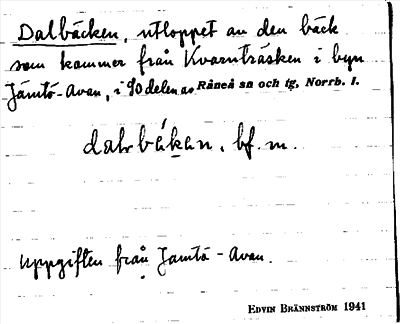 Dalbäcken, utloppet av den bäck
som kommer från Kvarnträsken i byn
Jämtö-Avan, i SO delen av Råneå sn och tg, Norrb. l.
dalrbäkan, bf. m.
Uppgiften från Jämtö-Avan.
EDVIN BRÄNNSTRÖM 1941